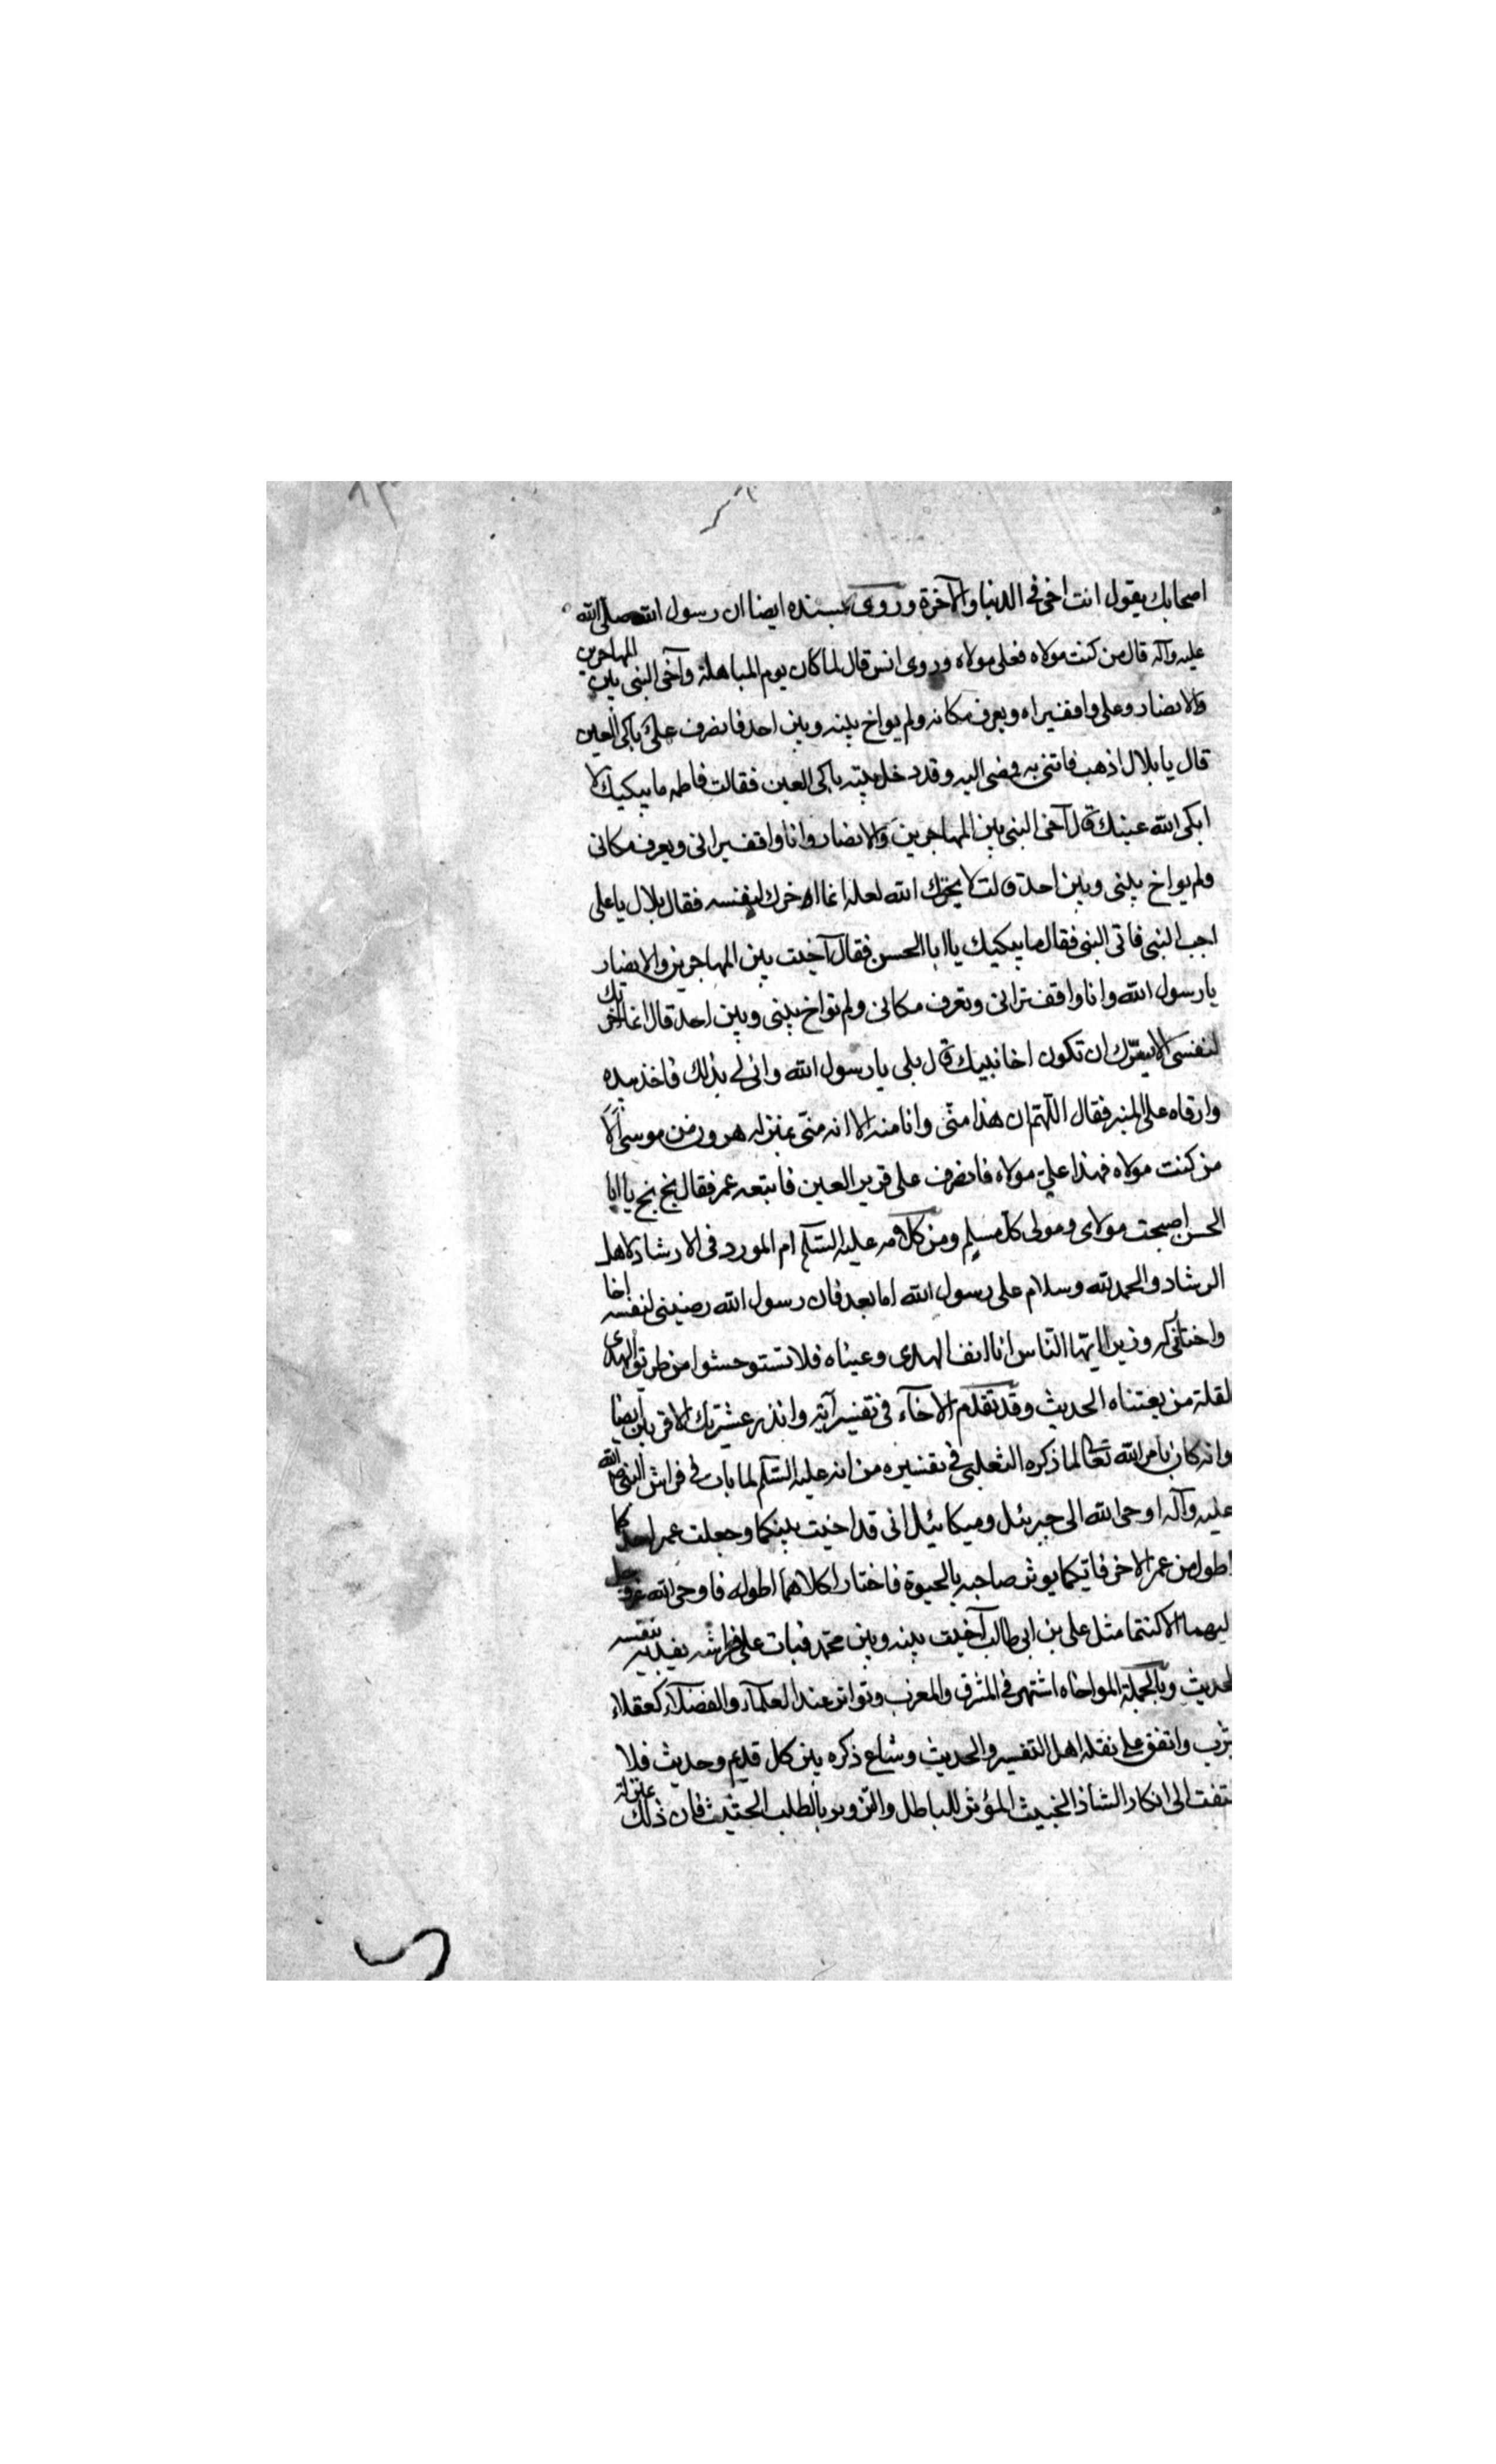 اصحابك يقول انت اخى فى الدنيا والآخرة وروى بسنده ايضا ان رسول الله صلى الله
عليه وآله قال من كنت مولاه فعلى مولاه وروى انس قال لما كان يوم المباهلة وآخى النبى بين المهاجرين
والانصار وعلى واقف يراه ويعرف مكانه ولم يواخ بينه وبين احد فانصرف على باكى العين
قال يا بلال اذهب فائتنى به فمضى اليه وقد دخل بيته باكى العين فقالت فاطمه ما يبكيك لا
ابكى الله عينك قال آخى النبى بين المهاجرين والانصار وانا واقف يرانى ويعرف مكانى
ولم يواخ بينى وبين احد قالت لا يحزنك الله لعله انما ادخرك لنفسه فقال بلال يا على
اجب النبى فاتى النبى فقال ما يبكيك يا ابا الحسن فقال آخيت بين المهاجرين والانصار
يا رسول الله وانا واقف ترانى وتعرف مكانى ولم تواخ بينى وبين احد قال انما اخرتك
لنفسى الا يسرّك ان تكون اخا نبيك قال بلى يا رسول الله وانى لى بذلك فاخذ بيده
وارقاه على المنبر فقال اللّهم ان هذا منّى وانا منه الا انه منّى بمنزله هرون من موسى الا
من كنت مولاه فهذا علىّ مولاه فانصرف على قرير العين فاتبعه عمر فقال بخ بخ يا ابا
الحسن اصبحت مولاى ومولى كلّ مسلم ومن كلامه عليه السّلم ام المورد فى الارشاد لاهل
الرشاد والحمد لله وسلام على رسول الله اما بعد فان رسول الله رضينى لنفسه اخا
واختلفى له وزيرا ايّها النّاس انا انف الهدى وعيناه فلا تستوحشوا من طريق الهدى
لقلة من يغتناه الحديث وقد تقدم الاخآء فى تفسير آية وانذر عشيرتك الاقربين ايضا
وانه كان بامر الله تعالى لما ذكره الثعلبى فى تفسيره من انه عليه السّلم لما بات فى فراش النبى صلى الله
عليه وآله اوحى الله الى جبرئيل وميكائيل انى قد اخيت بينكما وجعلت عمر احدكما
اطول من عمر الاخر فايّكما يوثر صاحبه بالحيوة فاختارا كلاهما اطوله فاوحى الله عز وجل
ليهما الا كنتما مثل على بن ابى طالب آخيت بينه وبين محمّد فبات على فراشه يفديه بنفسه
لحديث وبالجملة المواخاه اشتهر فى المشرق والمغرب وتواتر عند العلمآء والفضلآء كعقلاء
يثرب واتفق على نقله اهل التفسير والحديث وشاع ذكره بين كل قديم وحديث فلا
تفت الى انكار الشاذ الخبيث المؤثر للباطل والتزوير بالطلب الحثيث فان ذلك بمنزلة